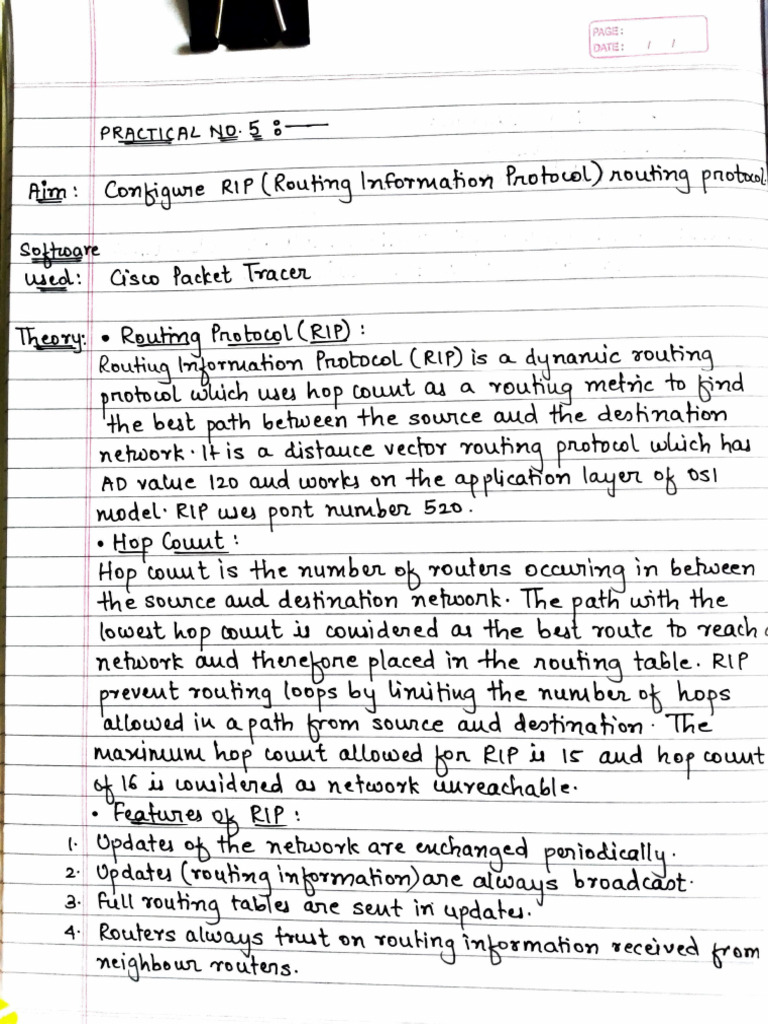 PAGE:
DATE: / /
PRACTICAL NO. 5 :—
Aim: Configure RIP (Routing Information Protocol) routing protocol.
Software
used: Cisco Packet Tracer
Theory: • Routing Protocol (RIP) :
Routing Information Protocol (RIP) is a dynamic routing
protocol which uses hop count as a routing metric to find
the best path between the source and the destination
network. It is a distance vector routing protocol which has
AD value 120 and works on the application layer of OSI
model. RIP uses port number 520.
• Hop Count :
Hop count is the number of routers occuring in between
the source and destination network. The path with the
lowest hop count is considered as the best route to reach a
network and therefore placed in the routing table. RIP
prevent routing loops by limiting the number of hops
allowed in a path from source and destination. The
maximum hop count allowed for RIP is 15 and hop count
of 16 is considered as network unreachable.
• Features of RIP :
1. Updates of the network are exchanged periodically.
2. Updates (routing information) are always broadcast.
3. Full routing tables are sent in updates.
4. Routers always trust on routing information received from
neighbour routers.